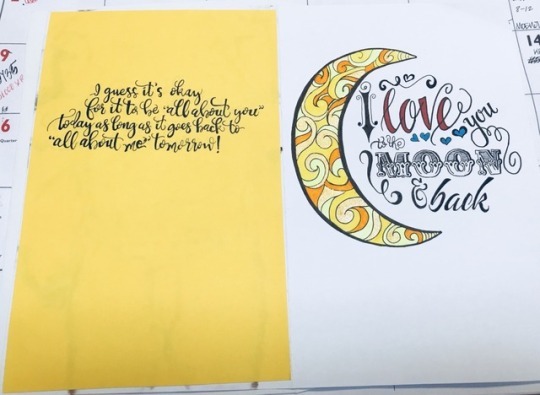 I guess it's okay
for it to be "all about you"
today as long as it goes back to
"all about me" tomorrow!
I love you
to the
MOON
& back
9
6
Quarter
8-12
14